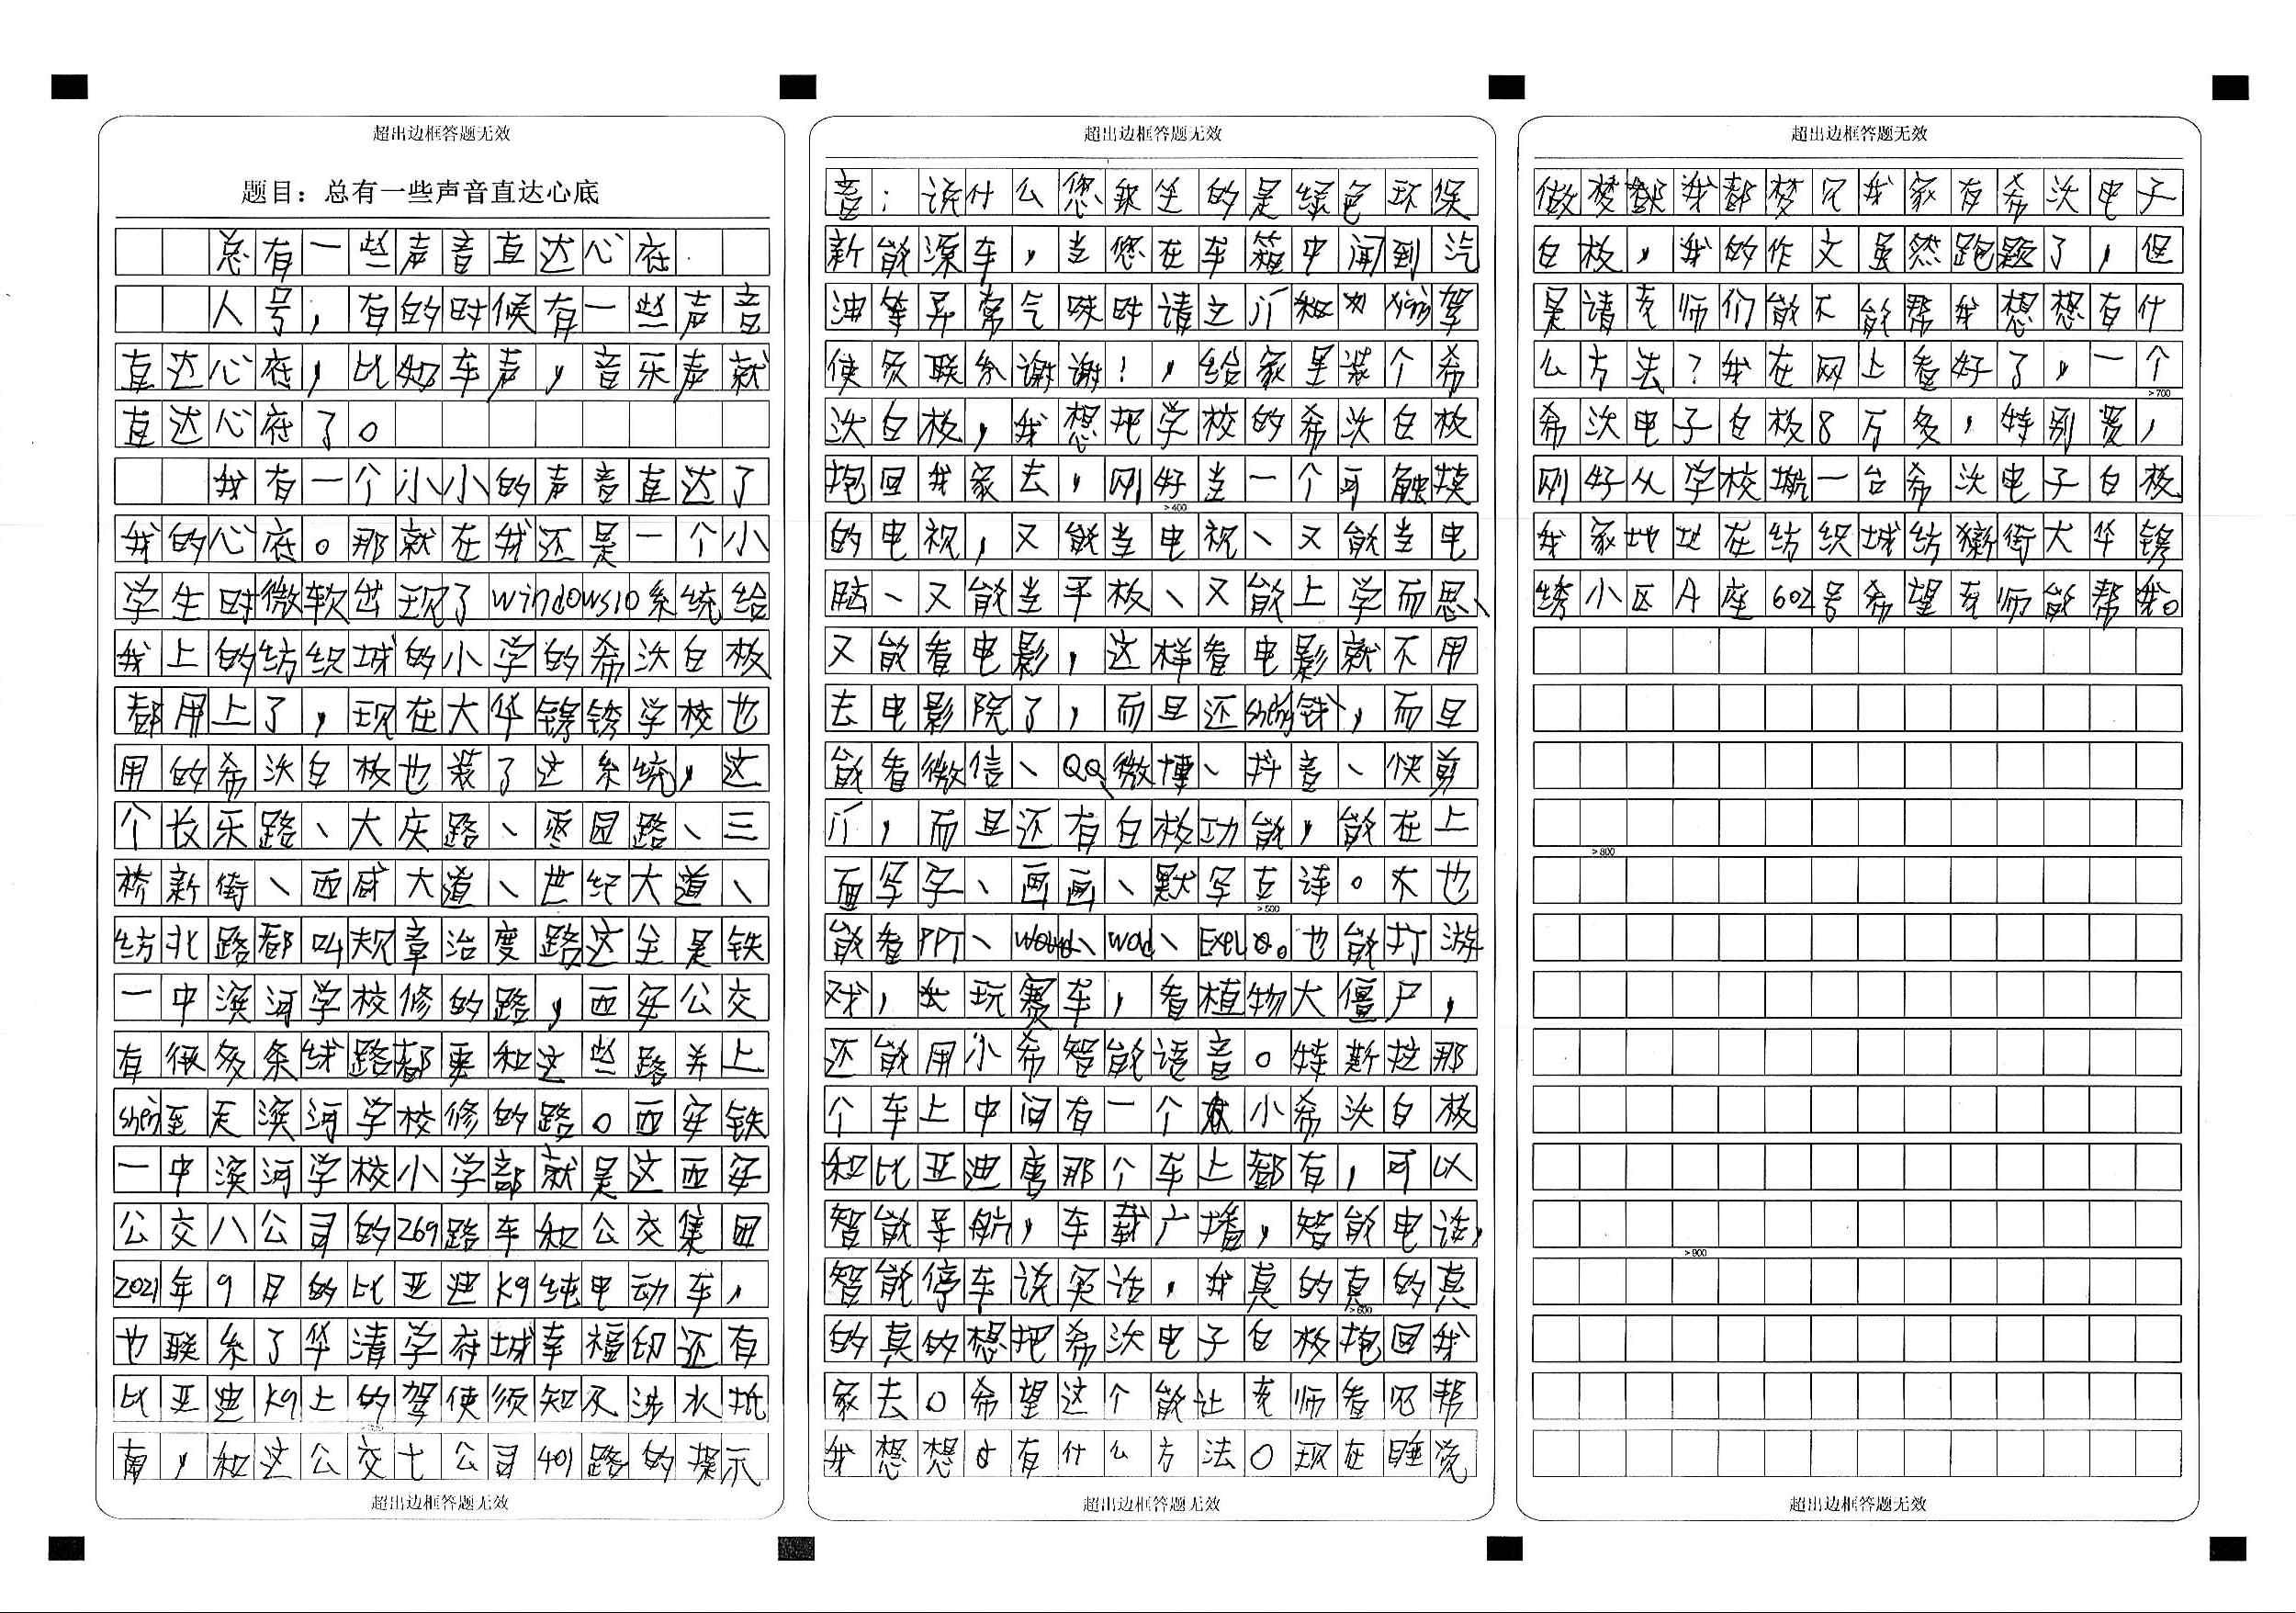 超出边框答题无效
题目：总有一些声音直达心底
总有一些声音直达心底
人号，有的时候有一些声音
直达心底，比如车声，音乐声就
直达心底了。
我有一个小小的声音直达了
我的心底。那就在我还是一个小
学生时微软出现了windows10系统给
我上的纺织城的小学的希沃白板
都用上了，现在大华锦绣学校也
用的希沃白板也装了这系统，这
个长乐路、大庆路、枣园路、三
桥新街、西咸大道、世纪大道、
纺北路都叫规章治度路这全是铁
一中滨河学校修的路，西安公交
有很多条线路都要和这些路并上
shèn至无滨河学校修的路。西安铁
一中滨河学校小学部就是这西安
公交八公司的269路车和公交集团
2021年9月的比亚迪K9纯电动车，
也联系了华清学府城幸福印还有
比亚迪K9上的驾使须知及涉水抵
南，和这公交七公司401路的提示
超出边框答题无效
超出边框答题无效
音：说什么您乘坐的是绿色环保
新能源车，当您在车箱中闻到汽
油等异常气味时请立即和驾
使员联系谢谢！，给家里装个希
沃白板，我想把学校的希沃白板
抱回我家去，刚好当一个可触摸
>400
的电视，又能当电视、又能当电
脑、又能当平板、又能上学而思、
又能看电影，这样看电影就不用
去电影院了，而且还shěng钱，而且
能看微信、QQ、微博、抖音、快剪
，而且还有白板功能，能在上
面写字、画画、默写互译。不也
>500
能看PPT、wod、Exel。也能打游
戏，玩赛车，看植物大僵尸，
还能用小希智能语音。特斯拉那
个车上中间有一个小希沃白板
和比亚迪唐那个车上都有，可以
智能导航，车载广播，智能电话，
智能停车说笑话，我真的真的真
>600
的真的想把希沃电子白板抱回我
家去。希望这个能让老师看见帮
我想想有什么方法。现在睡觉
超出边框答题无效
超出边框答题无效
做梦我都梦见我家有希沃电子
白板，我的作文虽然跑题了，但
是请老师们能不能帮我想想有什
么方法？我在网上看好了，一个
>700
希沃电子白板8万多，特别贵，
刚好从学校搬一台希沃电子白板
我家地址在纺织城纺街大华锦
绣小区A座602号希望老师能帮我。
>800
>900
超出边框答题无效